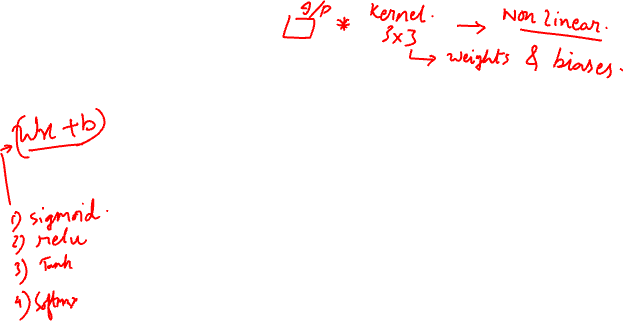 I/P
* Kernel. → Non linear.
3x3
↳ weights & biases.
(Wx + b)
1) sigmoid.
2) relu
3) Tanh
4) Softmx